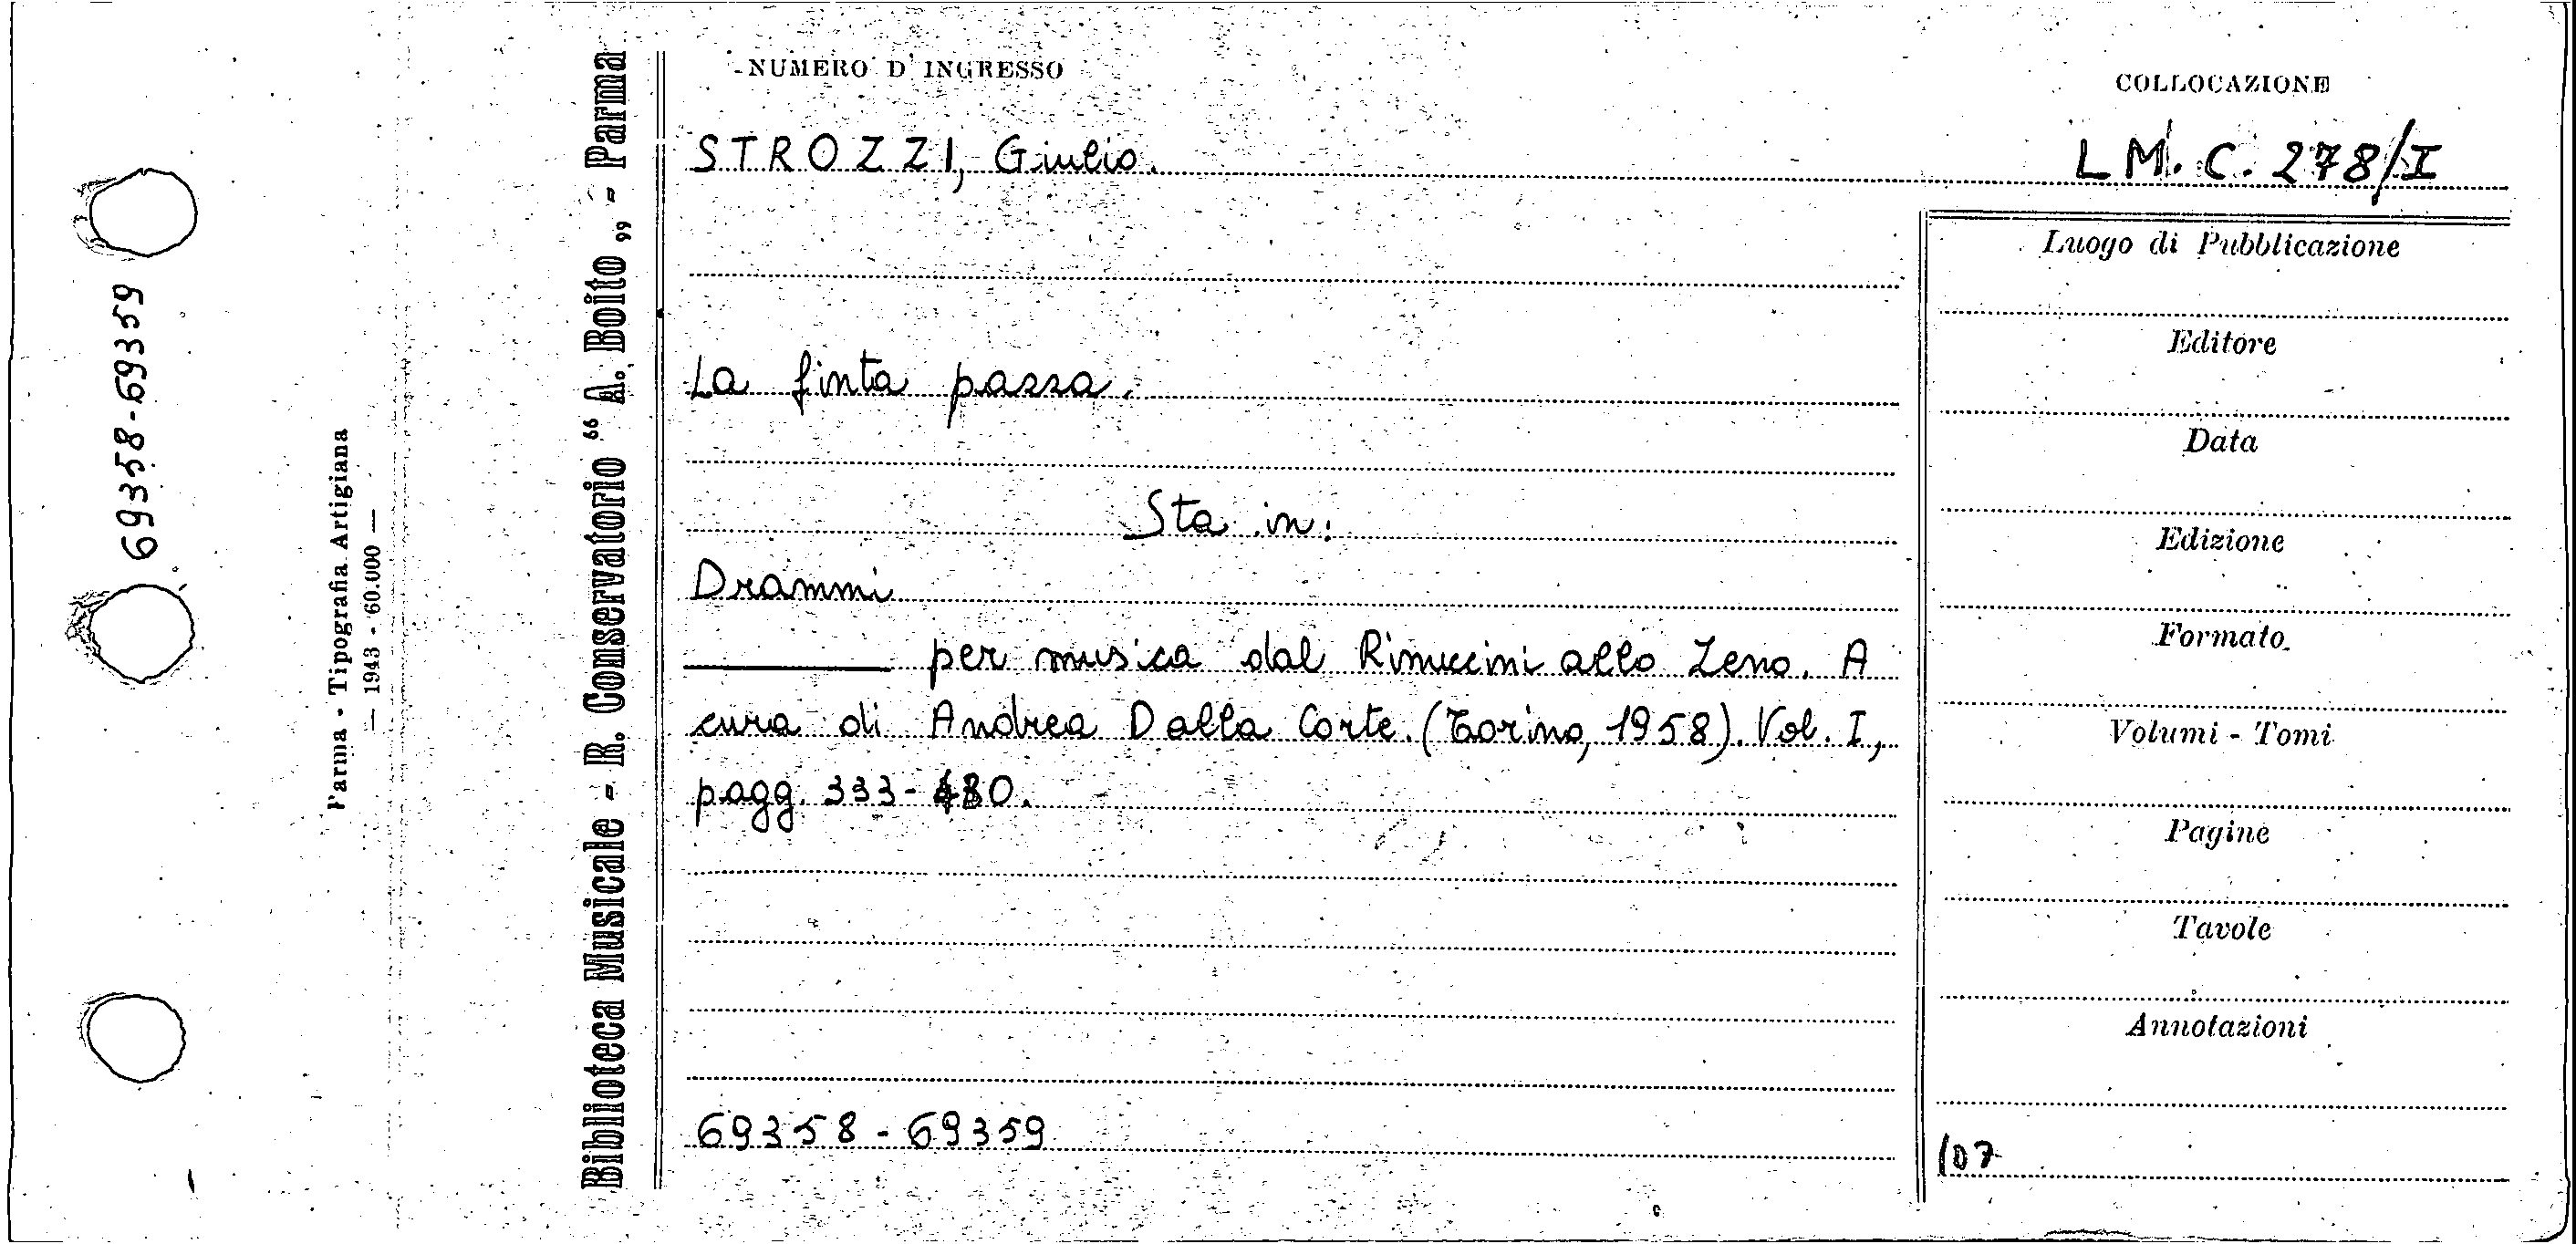 NUMERO D'INGRESSO
COLLOCAZIONE
STROZZI, Giulio.
LM. C. 278/I
La finta pazza.
Sta in:
Drammi
per musica dal Rinuccini allo Zeno. A
cura di Andrea Dalla Corte. (Torino, 1958). Vol. I,
pagg. 333-480.
69358-69359
Luogo di Pubblicazione
Editore
Data
Edizione
Formato
Volumi - Tomi
Pagine
Tavole
Annotazioni
107
Biblioteca Musicale - R. Conservatorio “ A. Boito „ - Parma
Parma - Tipografia Artigiana
— 1943 - 60.000 —
69358-69359